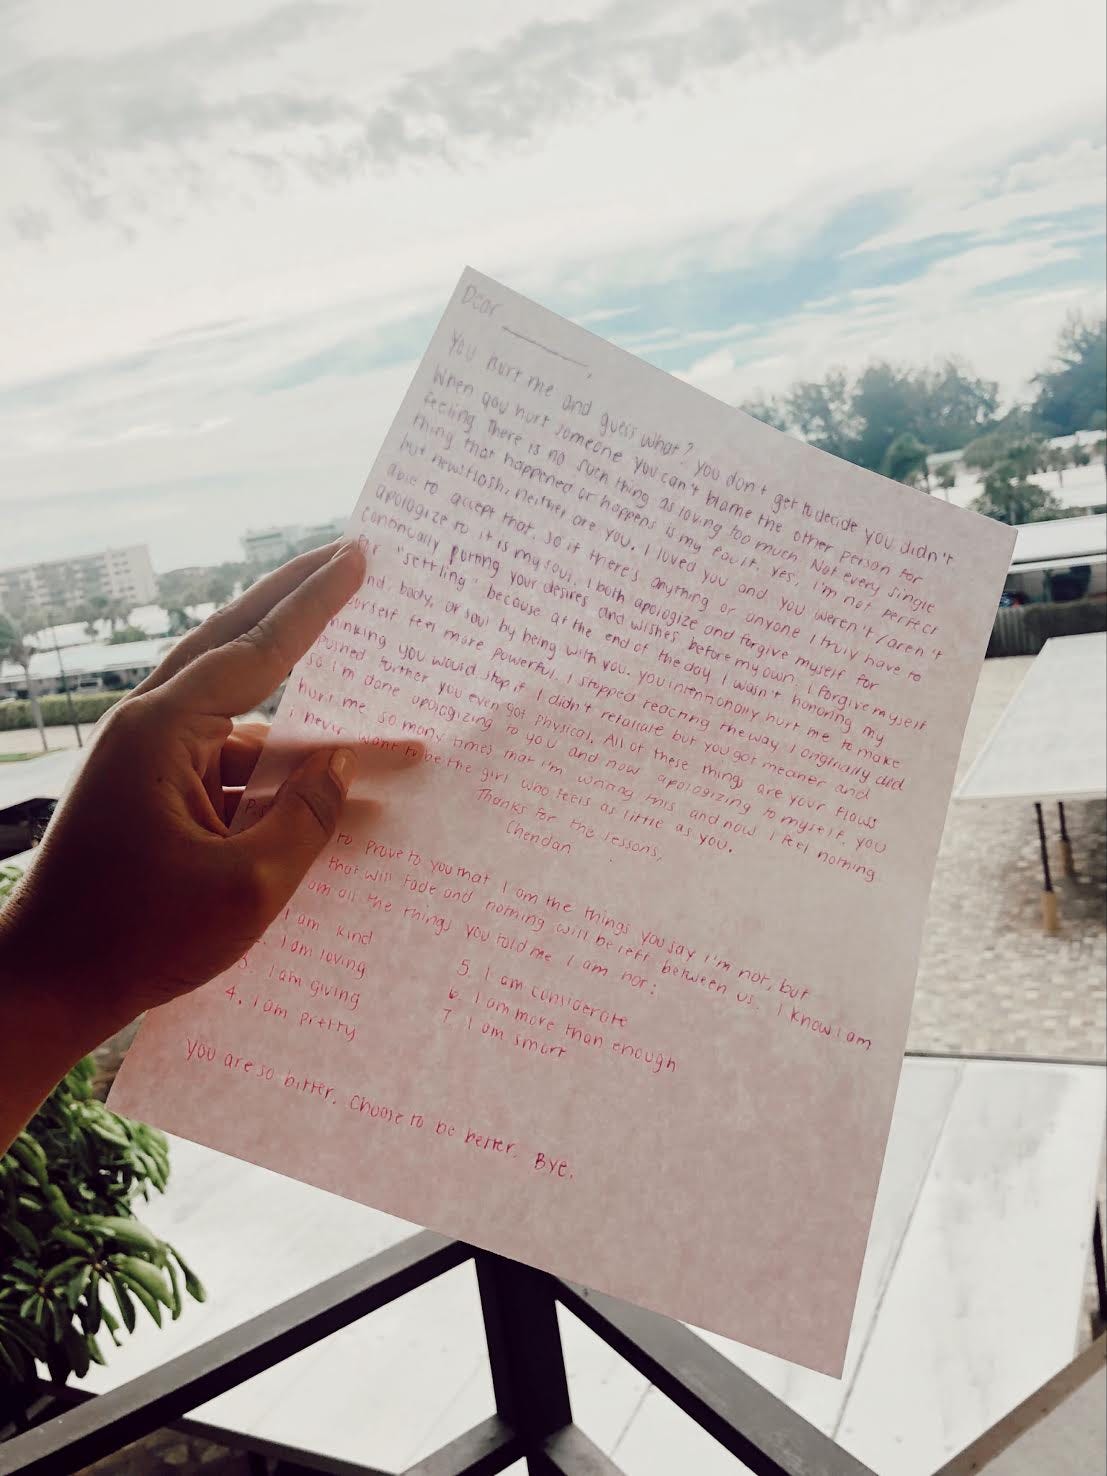 Dear ________,
You hurt me and guess what? You don't get to decide you didn't
When you hurt someone you can't blame the other person for
feeling. There is no such thing as loving too much. Not every single
thing that happened or happens is my fault. Yes, I'm not perfect
but newsflash, neither are you. I loved you and you weren't/aren't
able to accept that. So if there's anything or anyone I truly have to
apologize to it is my soul. I both apologize and forgive myself for
continually putting your desires and wishes before my own. I forgive myself
for "settling" because at the end of the day I wasn't honoring my
mind, body, or soul by being with you. You intentionally hurt me to make
yourself feel more powerful. I stopped reacting the way I originally did
thinking you would stop if I didn't retaliate but you got meaner and
pushed further you even got physical. All of these things are your flaws
so I'm done apologizing to you and now apologizing to myself. You
hurt me so many times that I'm writing this and now I feel nothing
i never want to be the girl who feels as little as you.
Thanks for the lessons,
Chendan
P.
to prove to you that I am the things you say I'm not, but
that will fade and nothing will be left between us. I know I am
am all the things you told me I am not:
I am kind
I am loving
3. I am giving
4. I am pretty
5. I am considerate
6. I am more than enough
7. I am smart
You are so bitter. Choose to be better. Bye.